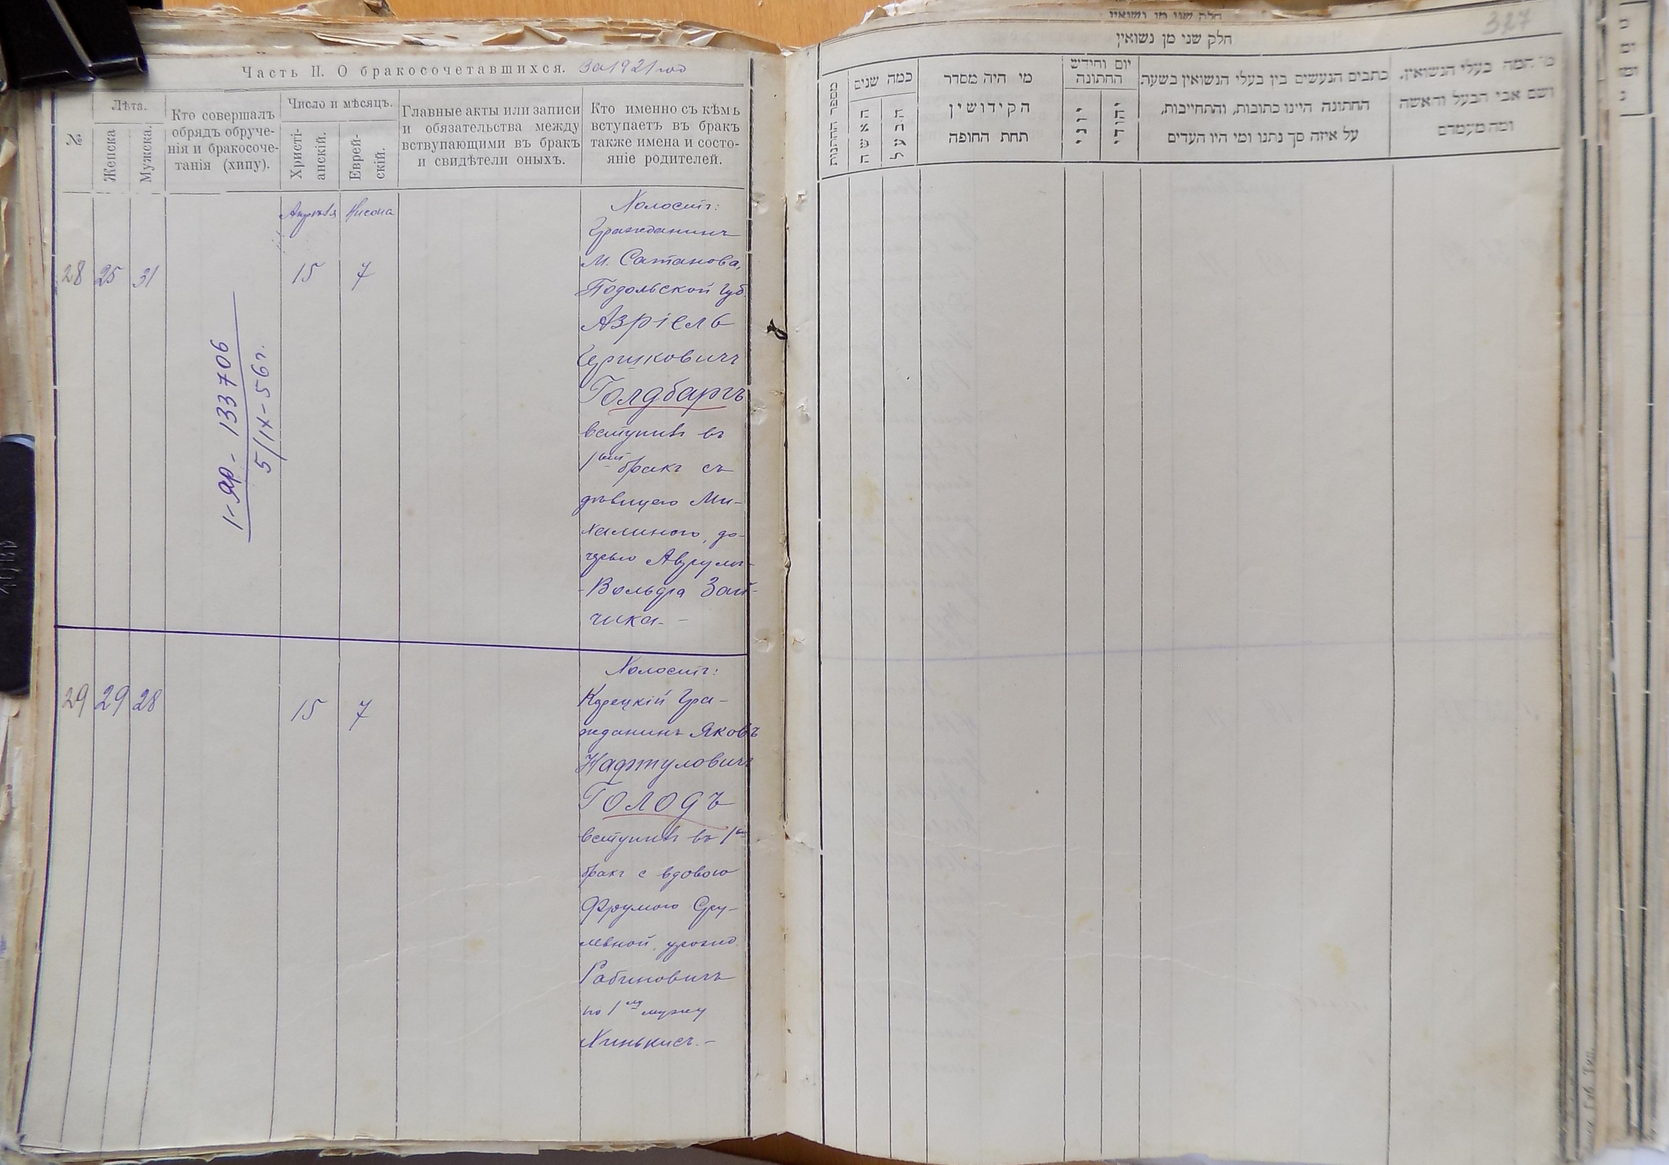 Часть II. О бракосочетавшихся. За 1921 год
№
Лѣта.
Женска
Мужска.
Кто совершалъ
обрядъ обруче-
нія и бракосоче-
танія (хипу).
Число и мѣсяцъ.
Христі-
анскій.
Еврей-
скій.
Главные акты или записи
и обязательства между
вствупающими въ бракъ
и свидѣтели оныхъ.
Кто именно съ кѣмъ
вступаетъ въ бракъ
также имена и состо-
яніе родителей.
28
25
31
1-яр- 133706
5/IX-56г.
Апрѣля
Нисона
15
7
Холостъ:
Гражданинъ
м. Сатанова,
Подольской губ
Азріель
Гершковичъ
Голдбаргъ
вступилъ въ
1ый бракъ съ
дѣвицею Ми-
халиного, до-
черью Аврумъ-
-Вольфа Зай-
чика-
29
29
28
15
7
Холостъ:
Корецкій гра-
жданинъ Яковъ
Нафтуловичъ
Голодъ
вступилъ въ 1й
бракъ с вдовою
Фрумою Сру-
левной, урожд
Рабиновичъ
по 1му мужу
Хинькисъ.-
חלק שני מן נשואין
327
חלק שני מן נשואין
מספר החתונות
כמה שנים
האשה
הבעל
מי היה מסדר
הקידושין
תחת החופה
יום וחודש
החתונה
יוני
יהודי
כתבים הנעשים בין בעלי הנשואין בשעת
החתונה היינו כתובות, והתחייבות,
על איזה סך נתנו ומי היו העדים
מי המה בעלי הנשואין,
ושם אבי הבעל והאשה
ומה מעמדם